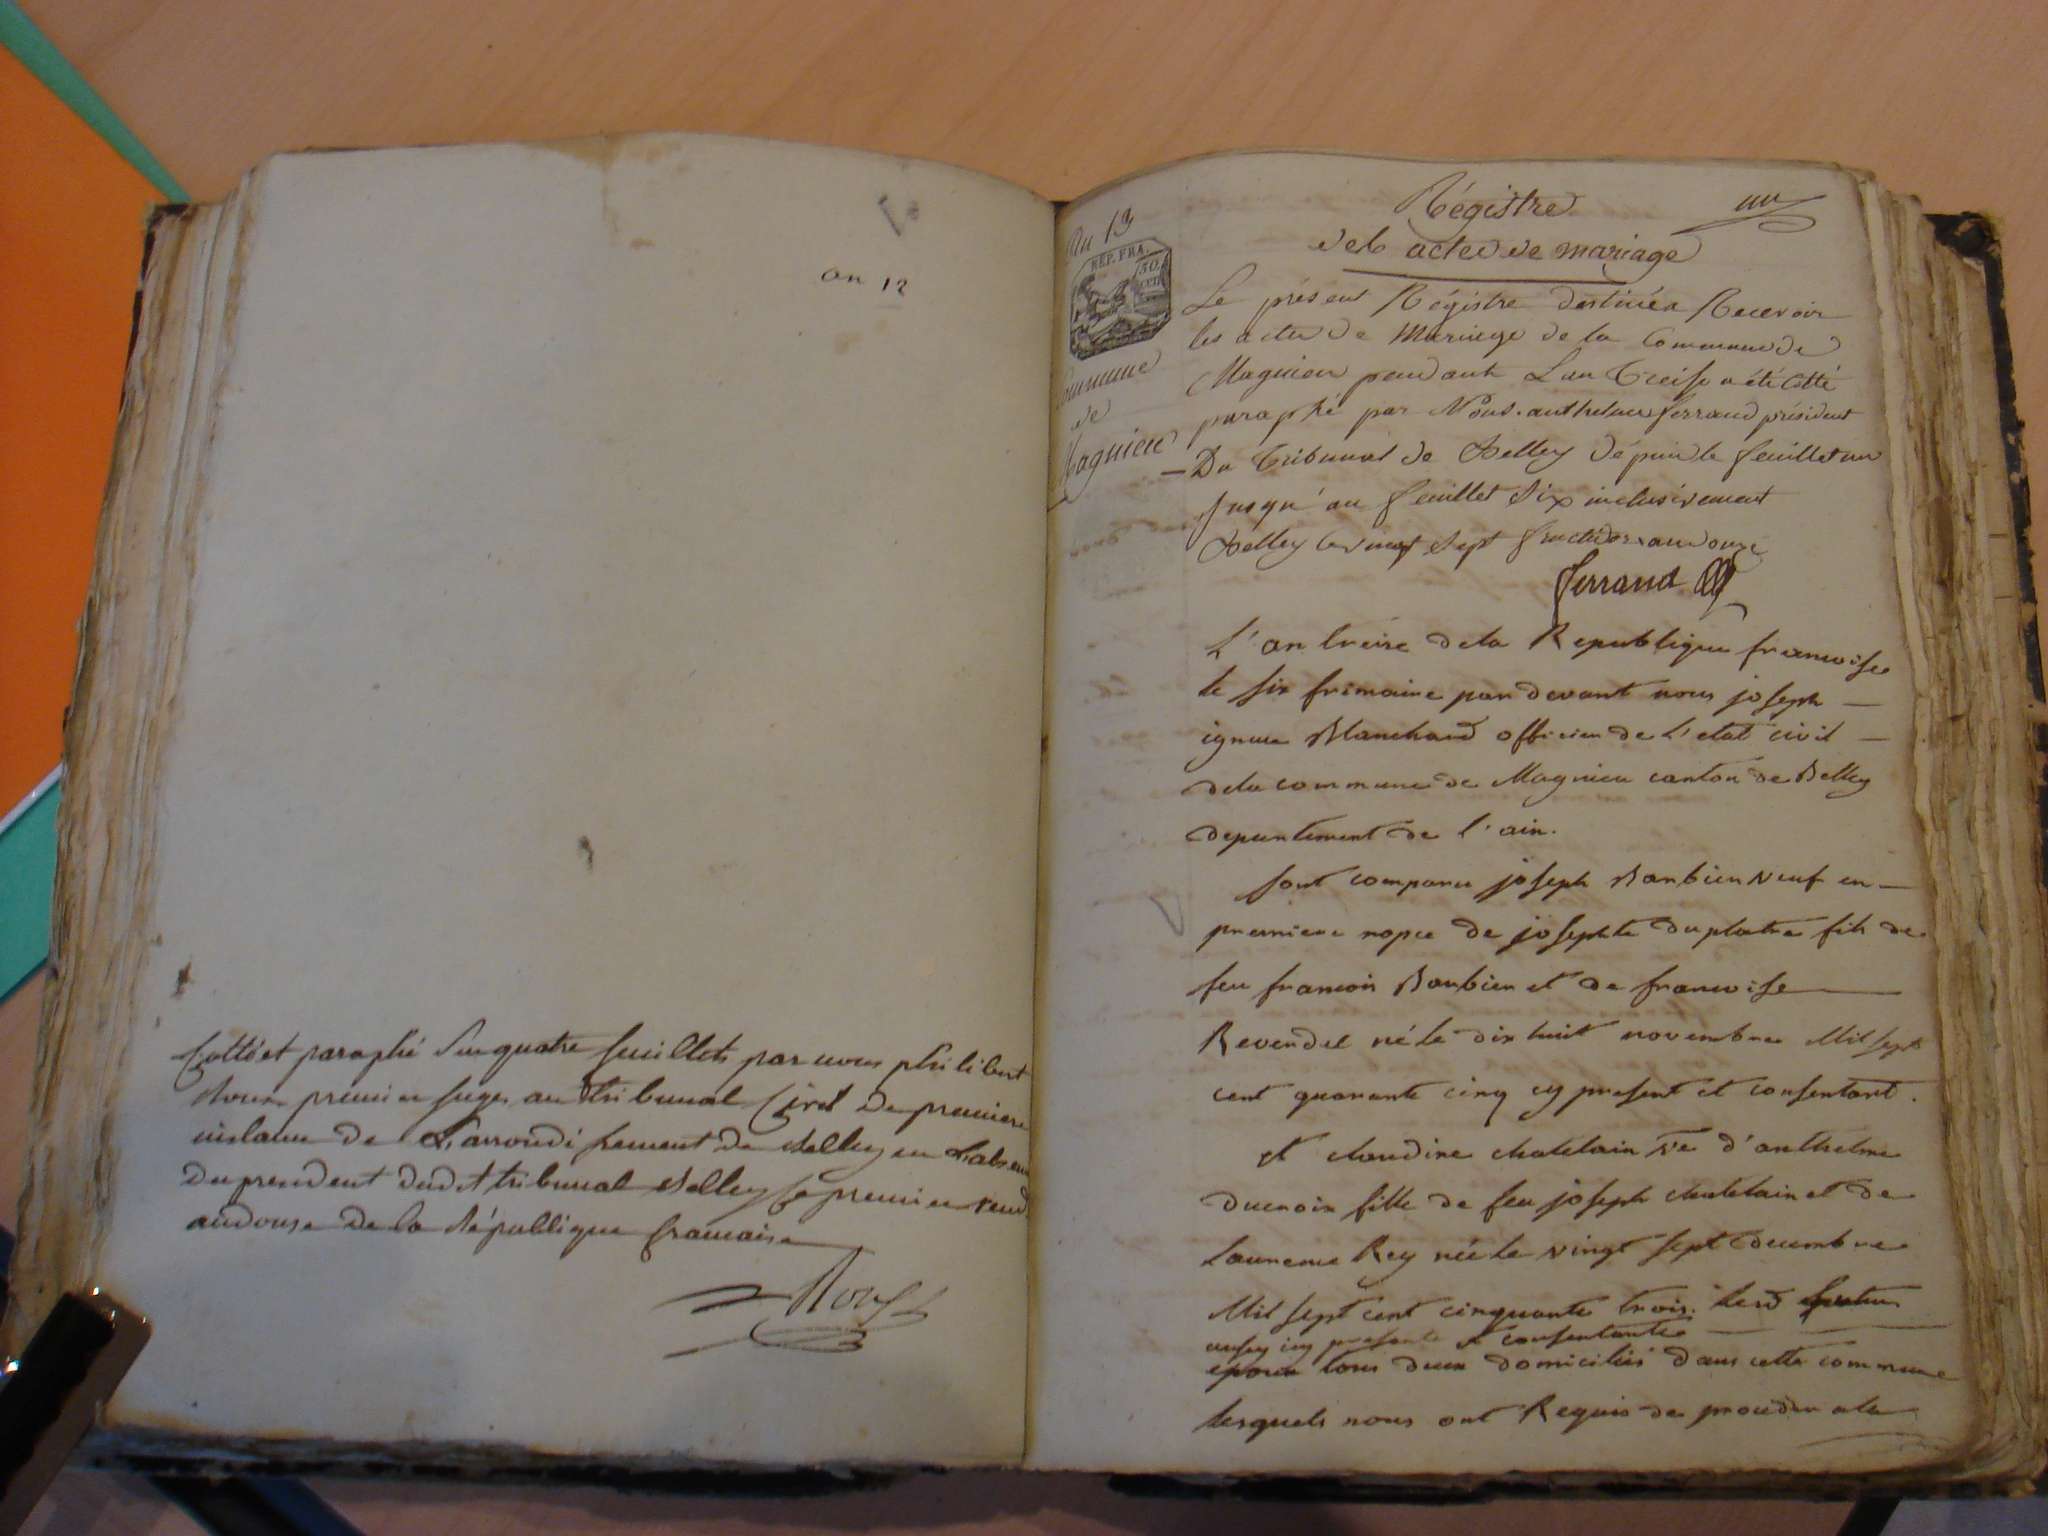 an 12
Cotté et paraphé sur quatre feuillets par nous philibert
premier juge au tribunal Civil De premiere
instance de L'arrondissement de Belley en L'absence
Du president dudit tribunal Belley le premier vend.
an douse De la République francaise
An 13
REP. FRA.
50
CEN
Commune
de
Magnieu
un
Régistre
des actes de mariage
Le présent Régistre destiné a Recevoir
les actes de Mariage de la Commune de
Magnieu pendant L'an Treise a été Cotté
paraphé par Nous anthelme ferrand président
Du Tribunal de Belley dépuis le feuillet un
jusqu'au feuillet Six inclusivement
Belley le vingt Sept fructidor an douze
ferrand
L'an treise dela Republique francoise
le six frimaire pardevant nous joseph
ignace Blanchard officier de l'etat civil
dela commune de Magnieu canton de Belley
departement de l'ain.
sont comparu joseph Barbier veuf en
premiere nopce de josephte duplatre fils de
feu francois Barbier et de francoise
Revendel né le dix huit novembre Mil sept
cent quarante cinq cy present et consentant.
et claudine chatelain ve d'anthelme
ducroix fille de feu joseph chatelain et de
laurence Rey née le vingt sept decembre
Mil sept cent cinquante trois. lesd futur
aussy icy presente et consentante
epoux tous deux domiciliés dans cette commune
lesquels nous ont Requis de proceder a la